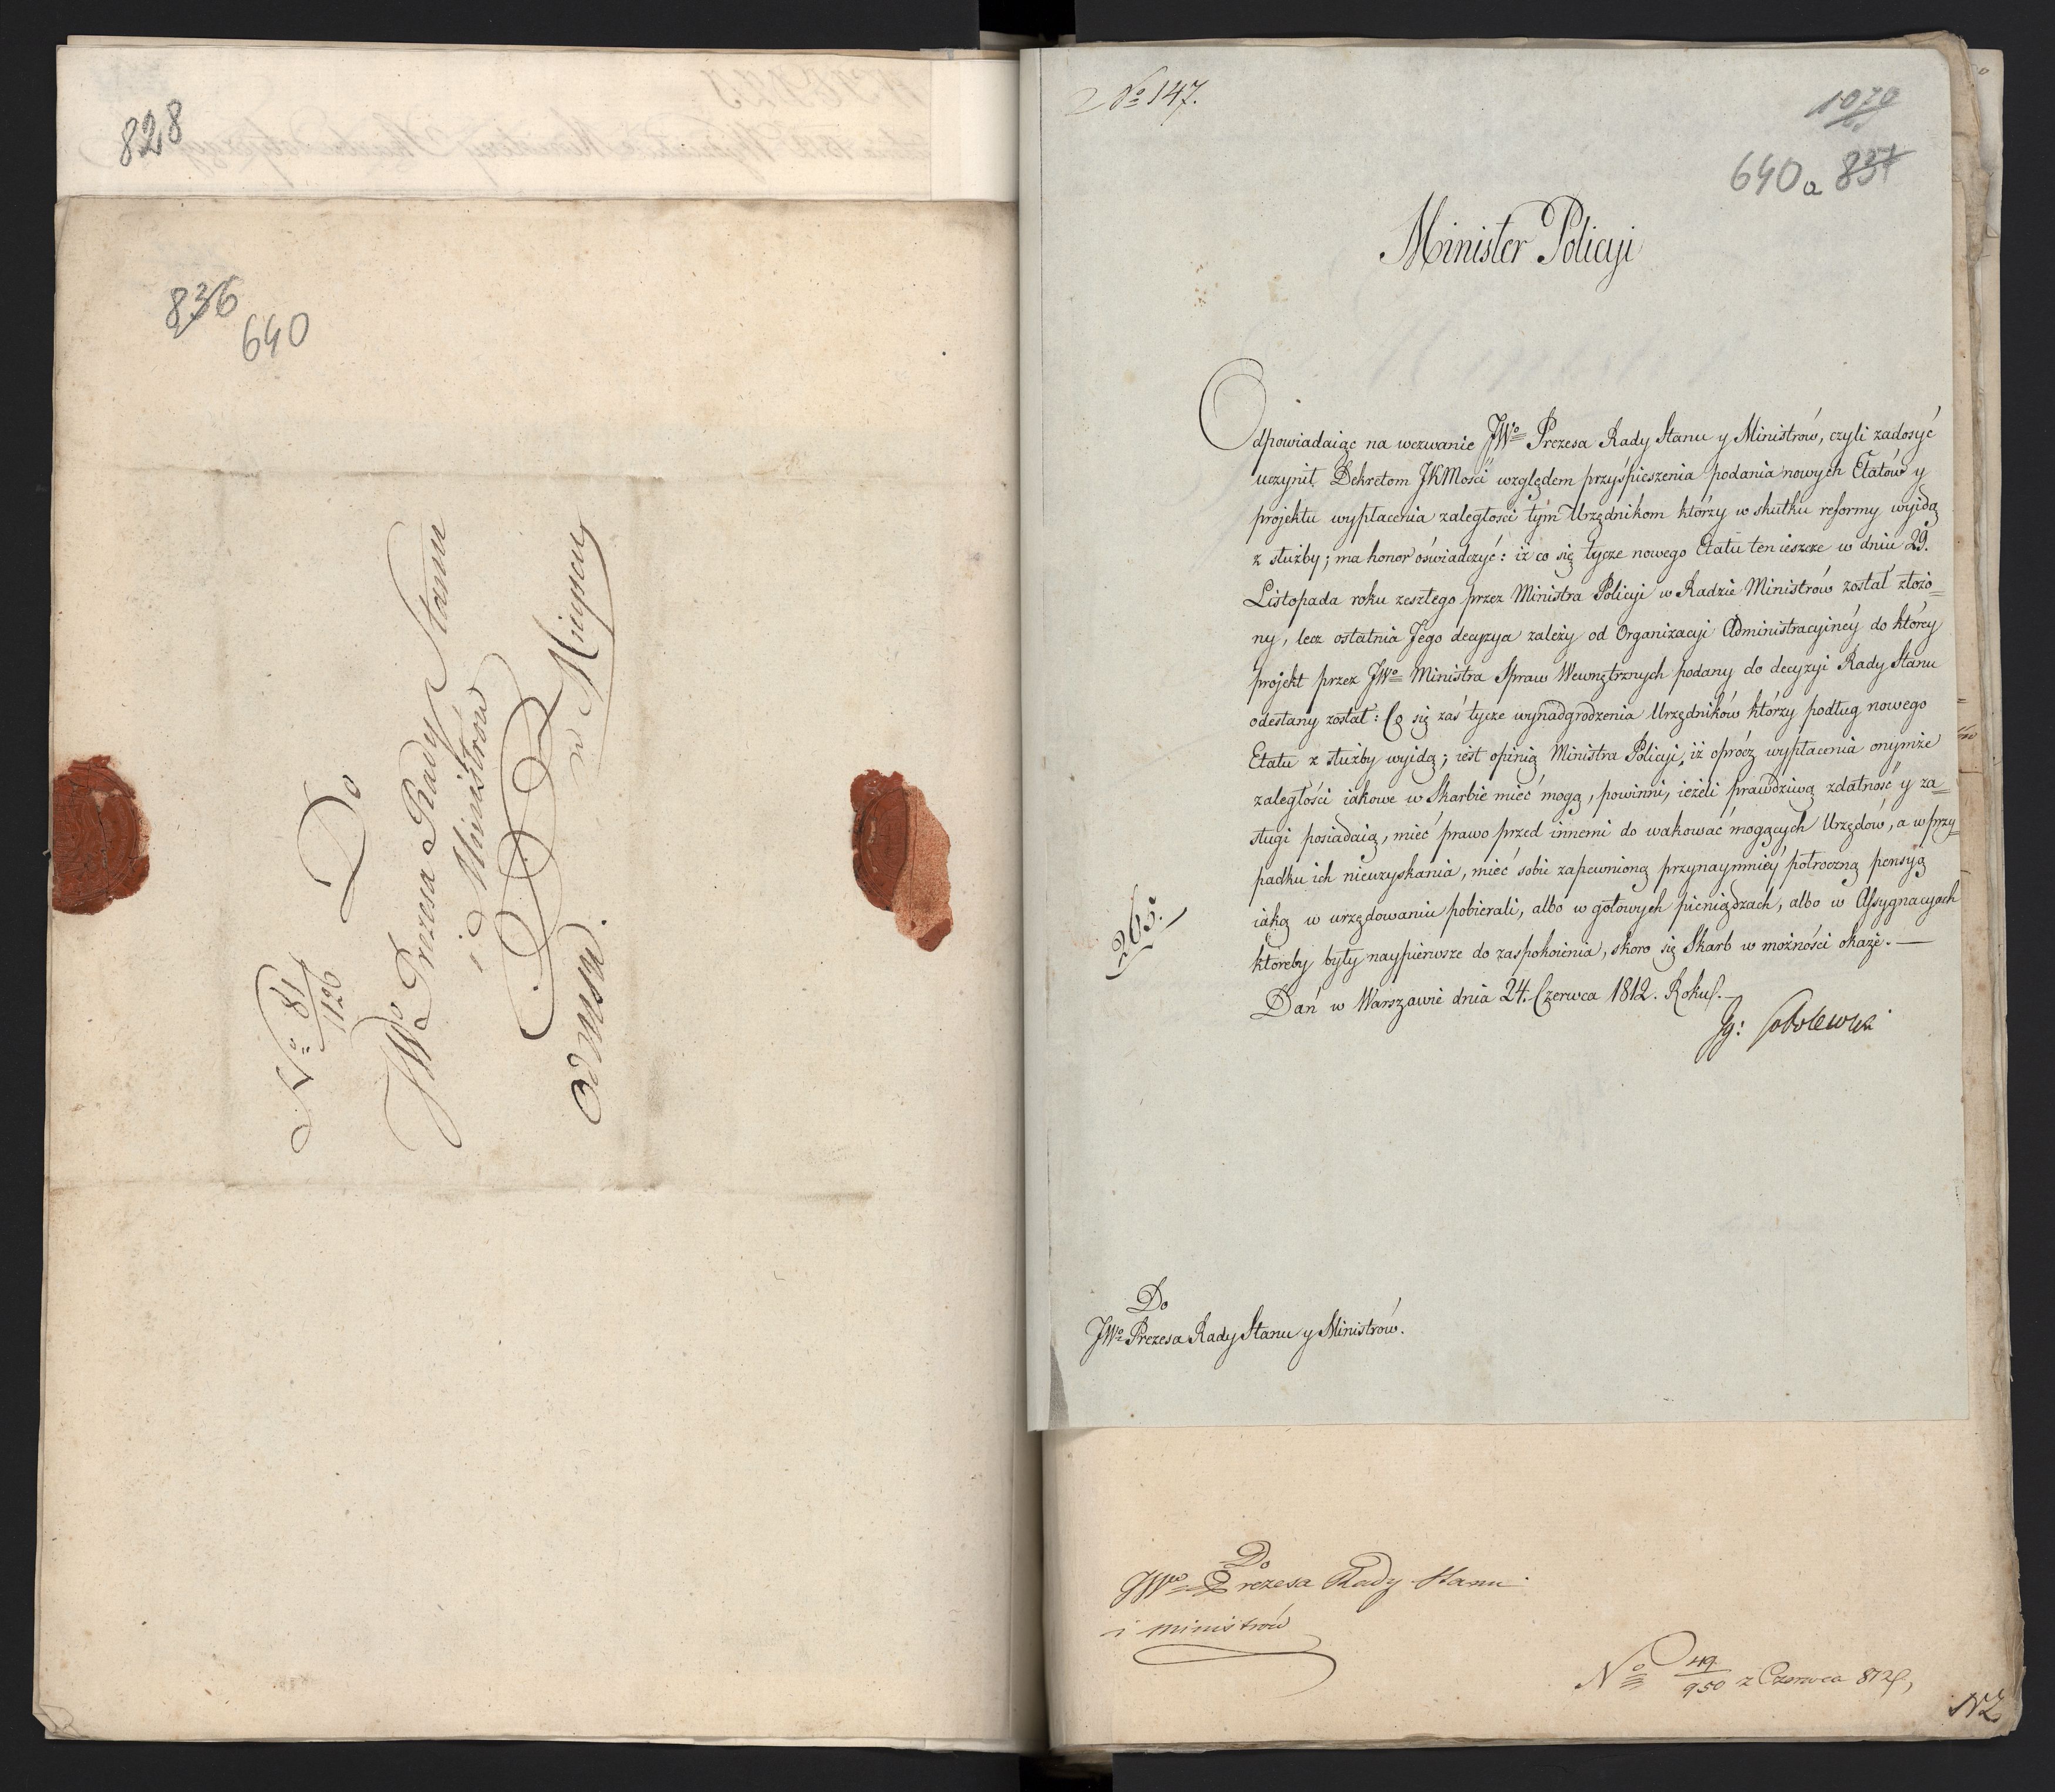 828
836
640
No 81/1126
Do
JWo Prezesa Rady Stanu
i Ministrów
w Mieyscu
No 147.
1070
640a 837
Minister Policyi
Odpowiadaiąc na wezwanie JWo Prezesa Rady Stanu y Ministrów, czyli zadosyć
uczynił Dekretom JKMości względem przyśpieszenia podania nowych Etatów y
projektu wypłacenia zaległości tym Urzędnikom którzy w skutku reformy wyidą
z służby; ma honor oświadczyć: iż co się tycze nowego Etatu ten ieszcze w dniu 29.
Listopada roku zeszłego przez Ministra Policyi w Radzie Ministrów został złożo=
ny, lecz ostatnia Jego decyzya zależy od Organizacyi Administracyiney do którey
projekt przez JWo Ministra Spraw Wewnętrznych podany do decyzyi Rady Stanu
odesłany został: Co się zaś tycze wynadgrodzenia Urzędników którzy podług nowego
Etatu z służby wyidą; iest opinią Ministra Policyi, iż oprócz wypłacenia onymże
zaległości iakowe w Skarbie mieć mogą, powinni, ieżeli prawdziwą zdatność y za=
sługi posiadaią, mieć prawo przed innemi do wakować mogących Urzędów, a w przy=
padku ich nieuzyskania, mieć sobie zapewnioną przynaymniey półroczną pensyą
iaką w urzędowaniu pobierali, albo w gotowych pieniądzach, albo w Assygnacyach
któreby były naypierwsze do zaspokoienia, skoro się Skarb w możności okaże. —
Dań w Warszawie dnia 24. Czerwca 1812. Roku.
Jg: Sobolewski
265.
Do
JWo Prezesa Rady Stanu y Ministrów.
Do
JWo Prezesa Rady Stanu
i Ministrów
No 44/950 z Czerwca 812